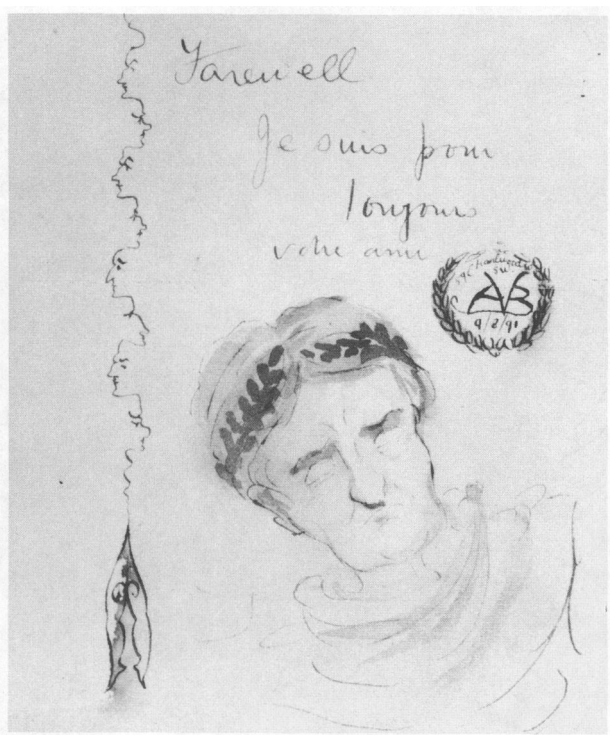 Farewell
Je suis pour
toujours
votre ami
AB
9/2/91